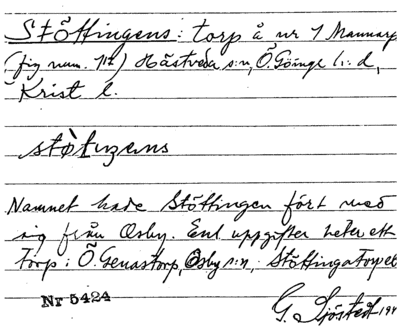 Stöffingens: torp å nr 1 Mannarp
(fig num. 112) Hästveda s:n, Ö. Göinge l:a d,
Krist l.
støtuzens
Namnet hade Stöffingen fört med
sig från Osby. Enl uppgifter heter ett
torp i Ö. Genastorp, Osby s:n, Stöffingatorpet
Nr 5424
G. Sjöstedt 194